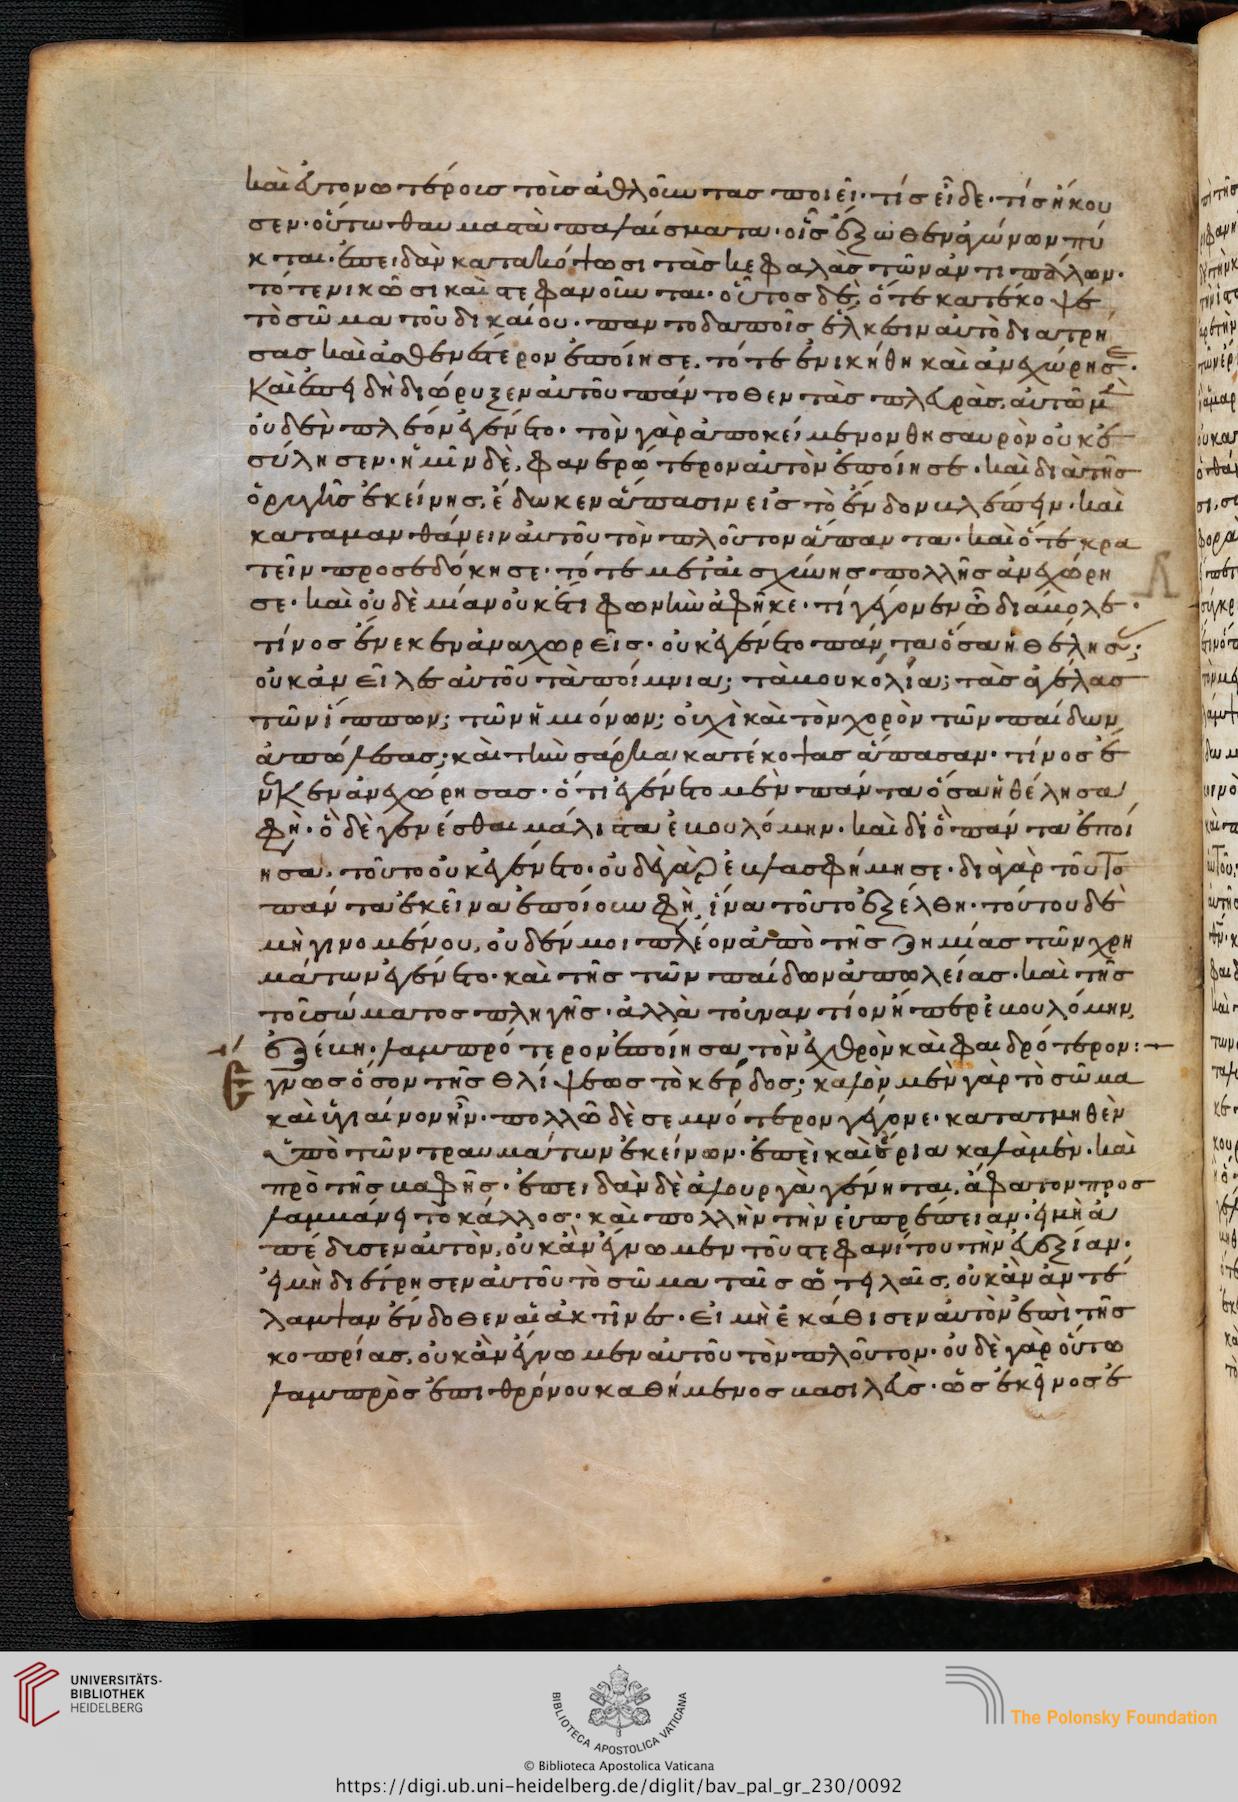 καὶ εὐτονωτέροις τοῖς ἀθλοῦντας ποιεῖ· τίς εἶδε· τίς ἤκου
σεν· οὕτω θαυμαστὰ παλαίσματα· οἱ ἔξωθεν ἀγώνων πύ
κται· ἐπειδὰν κατακόψωσι τὰς κεφαλὰς τῶν ἀντιπάλων·
τότε νικῶσι καὶ στεφανοῦνται· οὗτος δὲ, ὅτε κατέκοψε
τὸ σῶμα τοῦ δικαίου· παντοδαποῖς ἕλκεσιν αὐτὸ διατρή
σας καὶ ἀσθενέστερον ἐποίησε. τότε ἐνικήθη καὶ ἀνεχώρησε·
Καὶ ἐπειδὴ διώρυξεν αὐτοῦ πάντοθεν τὰς πλευρὰς, αὐτῶ μὲ
οὐδὲν πλέον ἐγένετο· τὸν γὰρ ἀποκείμενον θησαυρὸν οὐκ ἐ
σύλησεν· ἡμῖν δὲ, φανερώτερον αὐτὸν ἐποίησε· καὶ διὰ τῆς
ὀρυγῆς ἐκείνης, ἔδωκεν ἅπασιν εἰς τὸ ἔνδον βλέπειν· καὶ
καταμανθάνειν αὐτοῦ τὸν πλοῦτον ἅπαντα· καὶ ὅτε κρα
τεῖν προσεδόκησε· τότε μετ' αἰσχύνης πολλῆς ἀνεχώρη
σε· καὶ οὐδὲ μίαν οὐκέτι φωνὴν ἀφῆκε· τί γέγονεν ὦ διάβολε·
τίνος ἕνεκεν ἀναχωρεῖς· οὐκ ἐγένετο πάντα ὅσα ἠθέλησας;
οὐκ ἀνεῖλες αὐτοῦ τὰ ποίμνια; τὰ βουκόλια; τὰς ἀγέλας
τῶν ἵππων; τῶν ἡμιόνων; οὐχὶ καὶ τὸν χορὸν τῶν παίδων
ἀπώλεσας; καὶ τὴν σάρκα κατέκοψας ἅπασαν· τίνος ἕ
νεκεν ἀνεχώρησας· ὅτι ἐγένετο μὲν πάντα ὅσα ἠθέλησα
φὴ· ὃ δὲ γενέσθαι μάλιστα ἐβουλόμην· καὶ δι' ὃ πάντα ἐποί
ησα, τοῦτο οὐκ ἐγένετο· οὐδὲ γὰρ ἐβλασφήμησε· διὰ γὰρ τοῦτο
πάντα ἐκεῖνα ἐποίουν φὴ, ἵνα τοῦτο ἐξέλθη· τούτου δὲ
μὴ γινομένου, οὐδέν μοι πλέον ἀπὸ τῆς ζημίας τῶν χρη
μάτων ἐγένετο· καὶ τῆς τῶν παίδων ἀπωλείας· καὶ τῆς
τοῦ σώματος πληγῆς· ἀλλὰ τοὐναντίον ἤπερ ἐβουλόμην,
ἐξέβη· λαμπρότερον ἐποίησα τὸν ἐχθρὸν καὶ φαιδρότερον:
Ἔγνως ὅσον τῆς θλίψεως τὸ κέρδος; καλὸν μὲν γὰρ τὸ σῶμα
καὶ ὑγιαίνον ἦν· πολλῶ δὲ σεμνότερον γέγονε· κατατμηθὲν
ὑπὸ τῶν τραυμάτων ἐκείνων· ἐπεὶ καὶ ἔρια καλὰ μὲν· καὶ
πρὸ τῆς βαφῆς· ἐπειδὰν δὲ ἁλουργὰ γένηται, ἄφατον προσ
λαμβάνει τὸ κάλλος· καὶ πολλὴν τὴν εὐπρέπειαν· εἰ μὴ ἀ
πέδυσεν αὐτὸν, οὐκ ἂν ἔγνωμεν τοῦ στεφανίτου τὴν εὐεξίαν·
εἰ μὴ διέτρησεν αὐτοῦ τὸ σῶμα ταῖς ὠτειλαῖς, οὐκ ἂν ἀντέ
λαμψαν ἔνδοθεν αἱ ἀκτῖνες· εἰ μὴ ἐκάθισεν αὐτὸν ἐπὶ τῆς
κοπρίας, οὐκ ἂν ἔγνωμεν αὐτοῦ τὸν πλοῦτον· οὐδὲ γὰρ οὕτω
λαμπρὸς ἐπι θρόνου καθήμενος βασιλεὺς· ὡς ἐκεῖνος ἐ
UNIVERSITÄTS-
BIBLIOTHEK
HEIDELBERG
BIBLIOTECA APOSTOLICA VATICANA
The Polonsky Foundation
© Biblioteca Apostolica Vaticana
https://digi.ub.uni-heidelberg.de/diglit/bav_pal_gr_230/0092